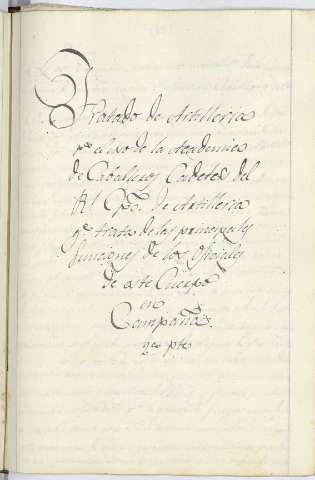 Tratado de Artilleria
pª el uso de la Academia
de Caballeros Cadetes del
Rl. Cpo. de Artilleria
qe. trata de las principales
funciones de los Oficiales
de este Cuerpo
en
Campaña.
2ª pte.